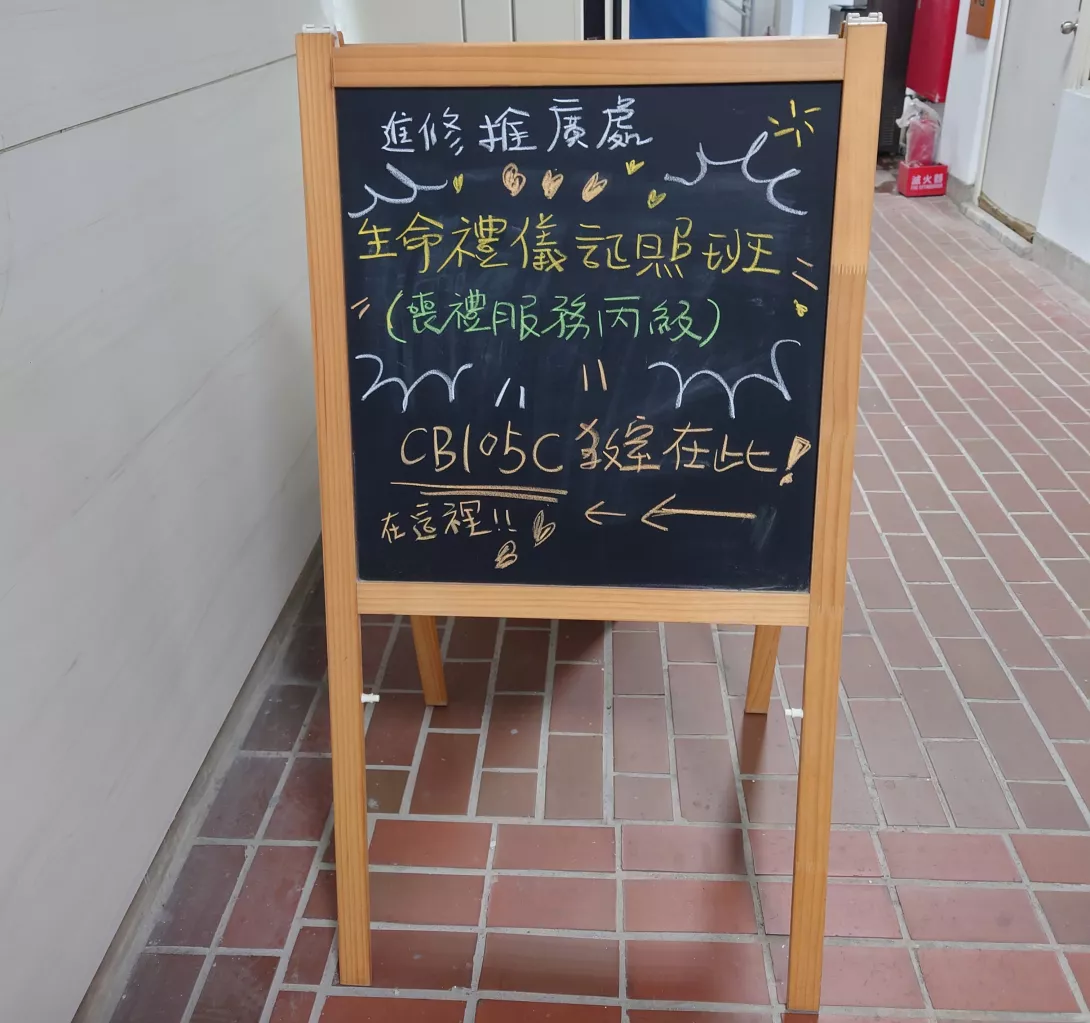 進修推廣處
生命禮儀証照班
(喪禮服務丙級)
CB105C 教室在此!
在這裡!!
滅火器